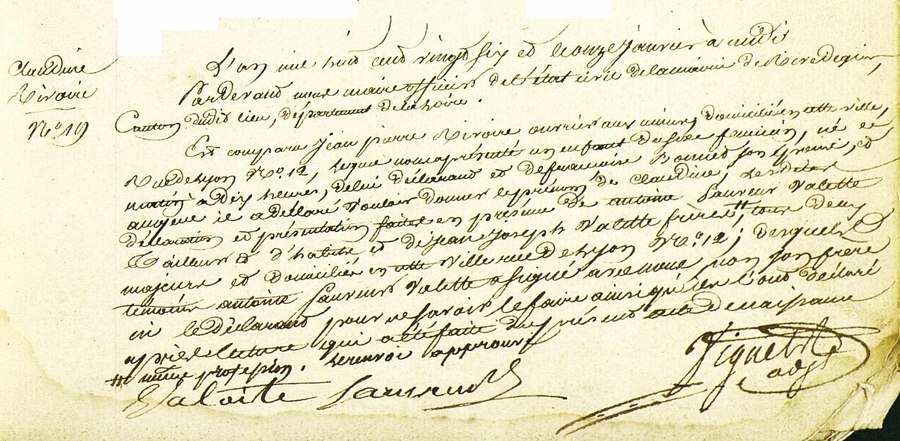 Claudine
Rivoire
N.o 19
L'an mil huit cent vingt six et le onze janvier à midi
Pardevant nous maire officier de l'état civil de la mairie de Rive de gier,
Canton dudit lieu, département de la Loire.
Est comparu Jean pierre Rivoire ouvrier aux mines domicilié en cette ville,
Rue de Lyon N.o 12, lequel nous a présenté un enfant du sexe féminin, né ce
matin à dix heures, de lui déclarant et de françoise Bonnet son épouse, et
auquel il a déclaré vouloir donner le prénom de Claudine, lesdites
déclaration et présentation faites en présence de antoine Sauveur Valette
Tailleur d'habits et de jean Joseph Valette frères # tous deux
majeurs et domiciliés en cette ville rue de Lyon N.o 12; desquels
témoins antoine Sauveur Valette a signé avec nous non son frère
ni le déclarant pour ne savoir le faire ainsi qu'ils l'ont déclaré
après lecture qui a été faite du présent acte de naissance
# même profession. renvoi approuvé
Valette Sauveur